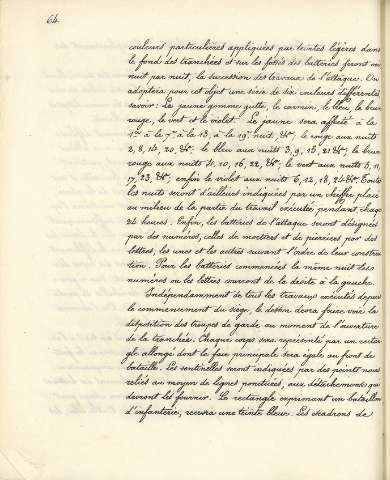 64.
couleurs particulières appliquées par teintes légères dans
le fond des tranchées et sur les fossés des batteries feront voir
nuit par nuit, la sucession des travaux de l'attaque. On
adoptera pour cet objet une série de six couleurs différentes
savoir: Le jaune gomme gutte, le carmin, le bleu, le brun
rouge, le vert et le violet. Le jaune sera affecté à la
1re à la 7e à la 13, à la 19e nuit, &a; le rouge aux nuits
2, 8, 14, 20, &a; le bleu aux nuits 3, 9, 15, 21 &a; le brun
rouge aux nuits 4, 10, 16, 22, &a; le vert aux nuits 5, 11,
17, 23, &a; enfin le violet aux nuits 6, 12, 18, 24 &a. Toutes
les nuits seront d'ailleurs indiquées par un chiffre placé
au milieu de la partie du travail exécutée pendant chaque
24 heures. Enfin, les batteries de l'attaque seront désignées
par des numéros, celles de mortiers et de pierriers par des
lettres, les unes et les autres suivant l'ordre de leur construc
tion. Pour les batteries commencées la même nuit les
numéros ou les lettres courront de la droite à la gauche.
Indépendamment de tous les travaux exécutés depuis
le commencement du siège, le dessin devra faire voir la
disposition des troupes de garde au moment de l'ouverture
de la tranchée. Chaque corps sera représenté par un rectan
gle allongé dont la face principale sera égale au front de
bataille. Les sentinelles seront indiquées par des points noirs
reliés au moyen de lignes ponctuées, aux détachements qui
devront les fournir. Le rectangle exprimant un bataillon
d'infanterie, recevra une teinte bleue. Les escadrons de